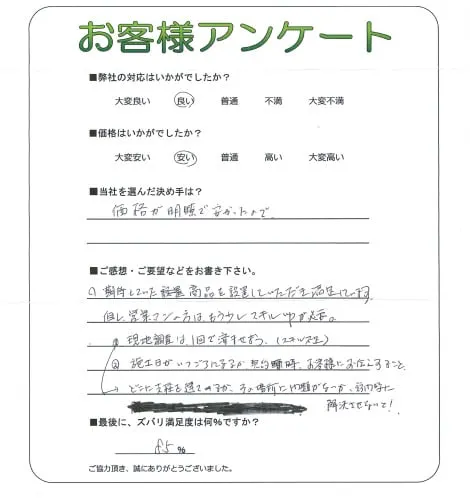 お客様アンケート
■弊社の対応はいかがでしたか？
大変良い 良い 普通 不満 大変不満
■価格はいかがでしたか？
大変安い 安い 普通 高い 大変高い
■当社を選んだ決め手は？
価格が明瞭で安かったので
■ご感想・ご要望などをお書き下さい。
期待していた設置商品を設置していただき満足しています。
但し、営業マンの方はもう少しスキルupが必要。
① 現地調査は1回で済ませよう。
② 施工日がいつごろになるか契約時、お客様にお伝えすること
どこに支柱を建てるか、その場所に問題がないか、
解決させないと！
■最後に、ズバリ満足度は何％ですか？
85%
ご協力頂き、誠にありがとうございました。